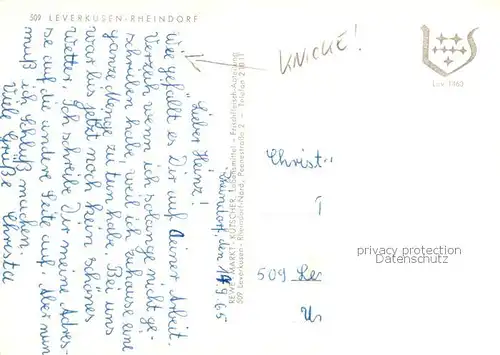 509 LEVERKUSEN-RHEINDORF
KNICKE!
Lev. 1963
Rheindorf, den 14.9.65
"Lieber Heinz!
Wie gefällt es Dir auf Deiner Arbeit.
Verzeih wenn ich solange nicht ge-
schrieben habe, weil ich zuhause eine
ganze Menge zu tun habe. Bei uns
war bis jetzt noch kein schönes
Wetter. Ich schreibe Dir meine Adres-
se auf die andere Seite auf. Aber nun
muß ich Schluß machen.
Viele Grüße Christa
REWE-MARKT - KÜTSCHER, Lebensmittel - Frischfleisch-Abteilung
509 Leverkusen-Rheindorf-Nord, Peenestraße 2 - Telefon 21011
Christ
509 Le
privacy protection
Datenschutz